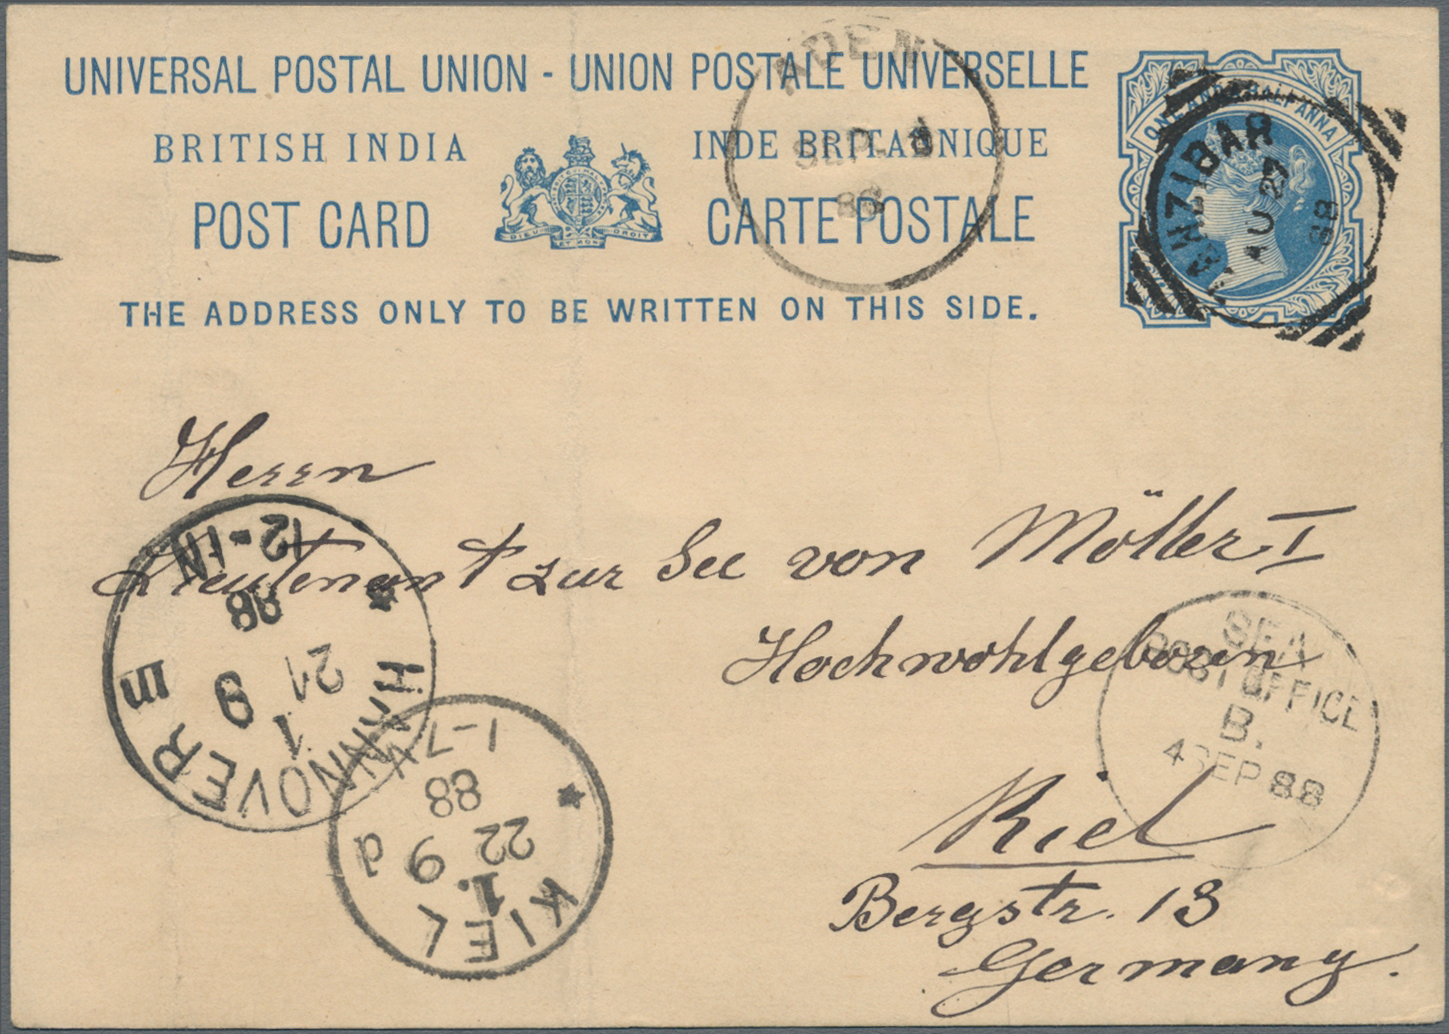 UNIVERSAL POSTAL UNION - UNION POSTALE UNIVERSELLE
BRITISH INDIA
INDE BRITANNIQUE
POST CARD
CARTE POSTALE
DIEU ET MON DROIT
THE ADDRESS ONLY TO BE WRITTEN ON THIS SIDE.
ONE AND A HALF ANNA
ZANZIBAR
AU 27
88
ADEN
SEP
88
Herrn
Lieutenant zur See von Möller I
Hochwohlgeboren
Kiel
Bergstr. 13
Germany.
SEA
POST OFFICE
B.
4 SEP 88
HANNOVER
1
21
9
88
12-1N
KIEL
1.
22
9
88
1-7
d